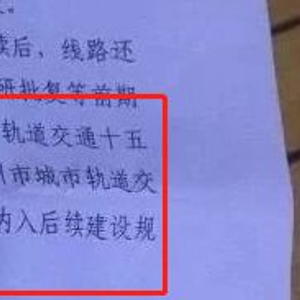 读后，线路还
研批复等前期
轨道交通十五
州市城市轨道交
内入后续建设规